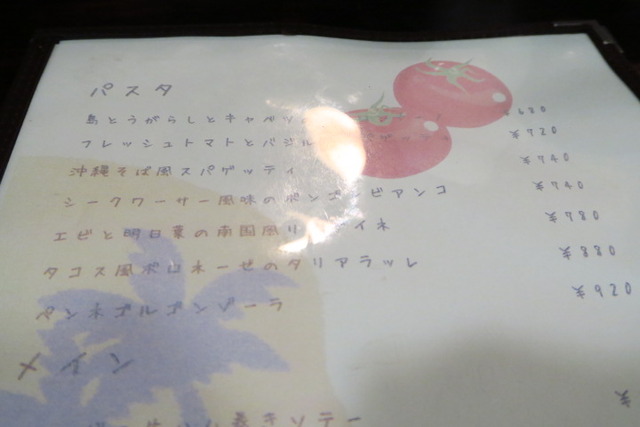 パスタ
島とうがらしとキャベツ ¥680
フレッシュトマトとバジル ¥720
沖縄そば風スパゲッティ ¥740
シークワーサー風味のボンゴレビアンコ ¥740
エビと明日葉の南国風リングイネ ¥780
タコス風ボロネーゼのタリアテッレ ¥880
ペンネゴルゴンゾーラ ¥920
メイン
ソテー ¥